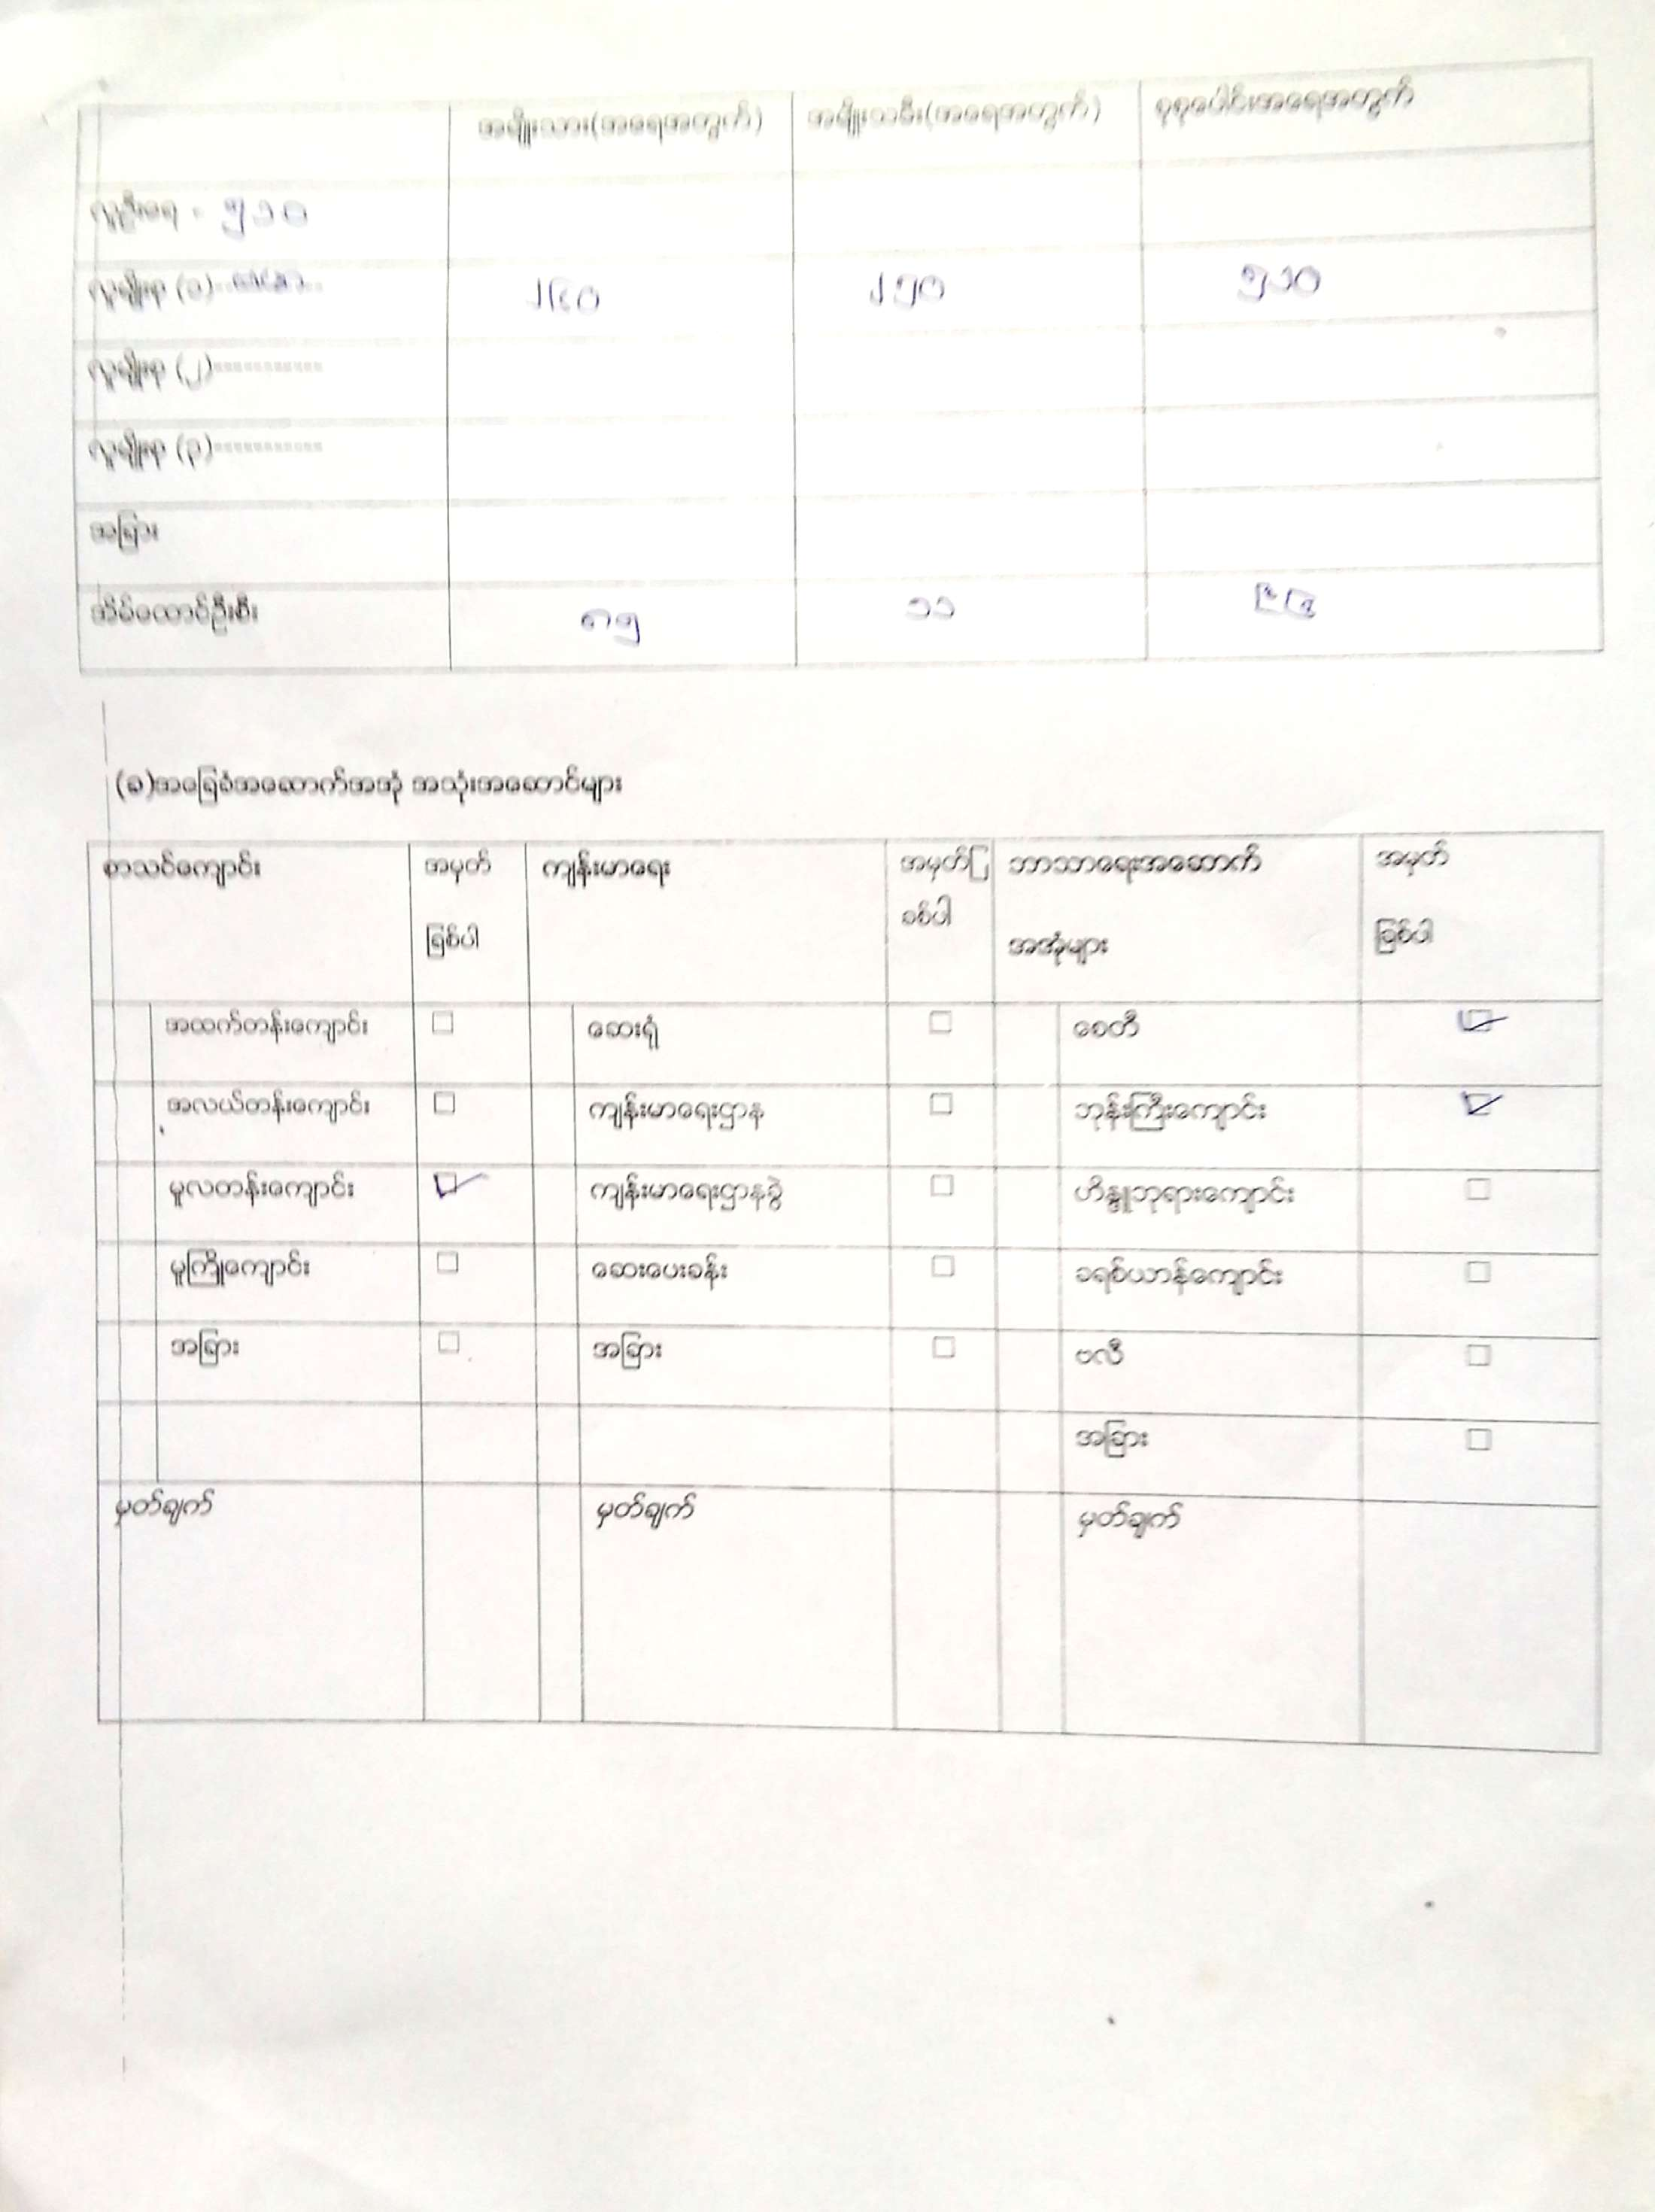 အမျိုးသား(အရေအတွက်) အမျိုးသမီး(အရေအတွက်) စုစုပေါင်းအရေအတွက်
လူဦးရေ - ၅၁၀
လူမျိုးစု (၁) ၂၄၀ ၂၅၀ ၅၁၀
လူမျိုးစု (၂)-----------
လူမျိုးစု (၃)-----------
အခြား
အိမ်ထောင်ဦးစီး ၈၅ ၁၁
(ခ)အခြေခံအဆောက်အအုံ အသုံးအဆောင်များ
စာသင်ကျောင်း အမှတ် ကျန်းမာရေး အမှတ်ြ ဘာသာရေးအဆောက် အမှတ်
ခြစ်ပါ ခစ်ပါ အအုံများ ခြစ်ပါ
အထက်တန်းကျောင်း ☐ ဆေးရုံ ☐ စေတီ ☑
အလယ်တန်းကျောင်း ☐ ကျန်းမာရေးဌာန ☐ ဘုန်းကြီးကျောင်း ☑
မူလတန်းကျောင်း ☑ ကျန်းမာရေးဌာနခွဲ ☐ ဟိန္ဒူဘုရားကျောင်း ☐
မူကြိုကျောင်း ☐ ဆေးပေးခန်း ☐ ခရစ်ယာန်ကျောင်း ☐
အခြား ☐ အခြား ☐ ဗလီ ☐
အခြား ☐
မှတ်ချက် မှတ်ချက် မှတ်ချက်